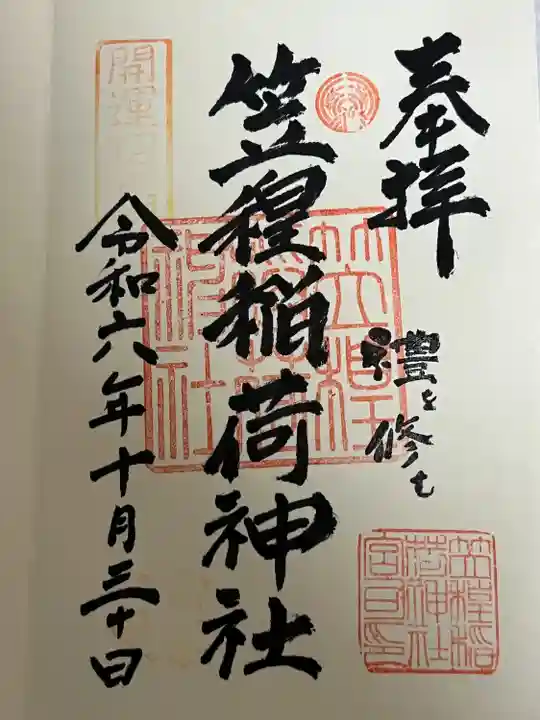 奉拝
禮を修む
笠䅣稲荷神社
笠䅣稲荷神社
笠䅣稲荷神社宮司印
開運
令和六年十月三十日